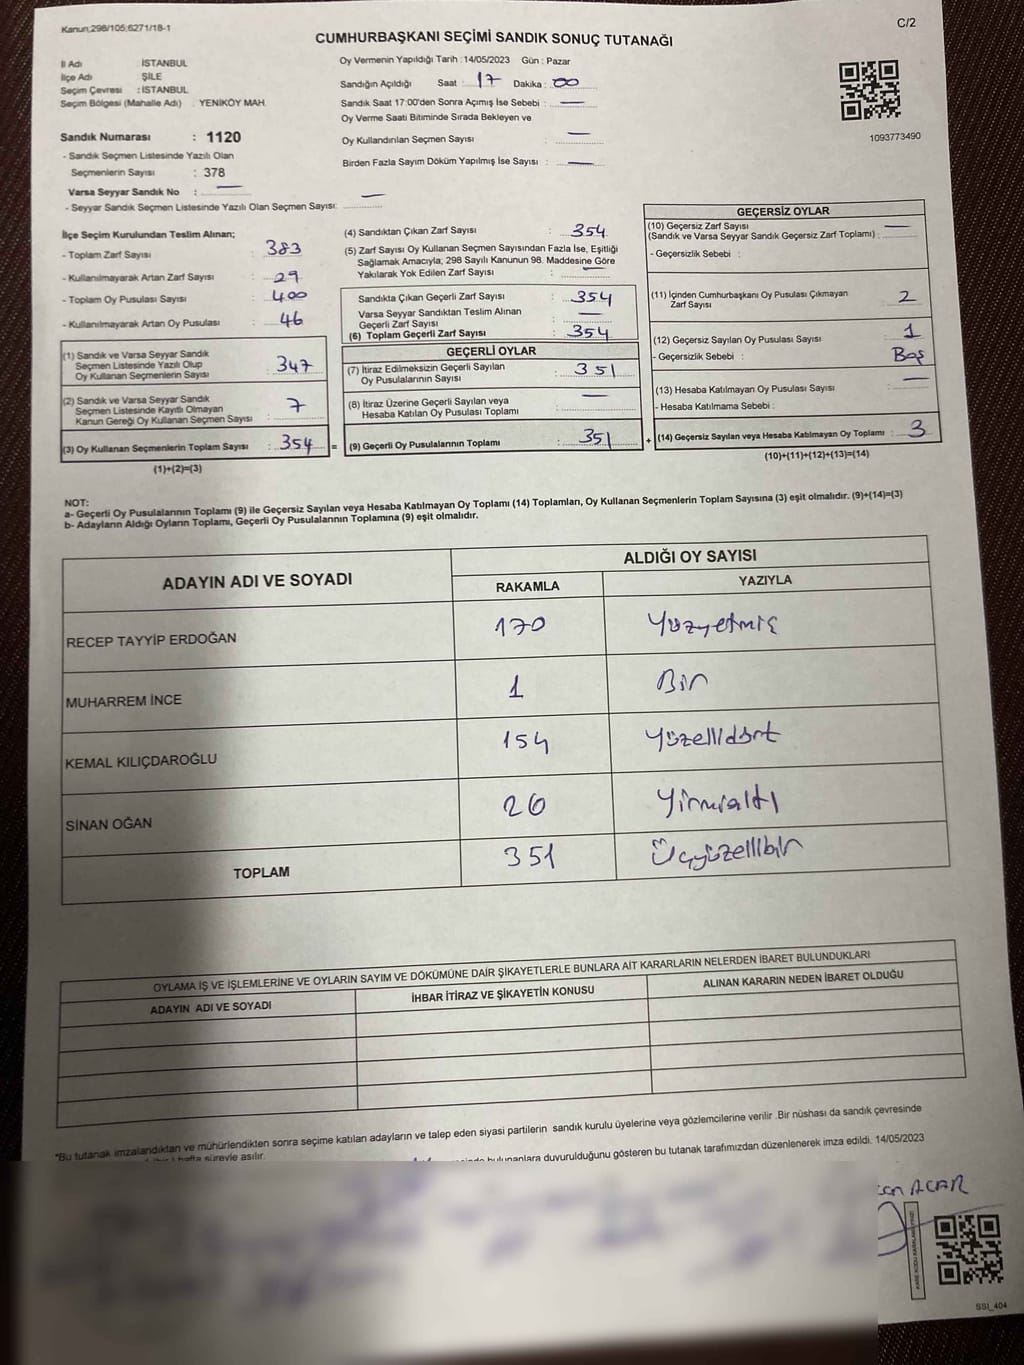 Kanun,298/105;6271/18-1
C/2
CUMHURBAŞKANI SEÇİMİ SANDIK SONUÇ TUTANAĞI
İl Adı : İSTANBUL
İlçe Adı : ŞİLE
Seçim Çevresi : İSTANBUL
Seçim Bölgesi (Mahalle Adı) : YENİKÖY MAH.
Sandık Numarası : 1120
- Sandık Seçmen Listesinde Yazılı Olan
Seçmenlerin Sayısı : 378
Varsa Seyyar Sandık No : —
- Seyyar Sandık Seçmen Listesinde Yazılı Olan Seçmen Sayısı: —
Oy Vermenin Yapıldığı Tarih :14/05/2023 Gün : Pazar
Sandığın Açıldığı Saat : 17 Dakika : 00
Sandık Saat 17:00'den Sonra Açımış İse Sebebi : —
Oy Verme Saati Bitiminde Sırada Bekleyen ve
Oy Kullandırılan Seçmen Sayısı : —
Birden Fazla Sayım Döküm Yapılmış İse Sayısı : —
1093773490
İlçe Seçim Kurulundan Teslim Alınan;
- Toplam Zarf Sayısı : 383
- Kullanılmayarak Artan Zarf Sayısı : 29
- Toplam Oy Pusulası Sayısı : 400
- Kullanılmayarak Artan Oy Pusulası : 46
(1) Sandık ve Varsa Seyyar Sandık
Seçmen Listesinde Yazılı Olup
Oy Kullanan Seçmenlerin Sayısı : 347
(2) Sandık ve Varsa Seyyar Sandık
Seçmen Listesinde Kayıtlı Olmayan
Kanun Gereği Oy Kullanan Seçmen Sayısı : 7
(3) Oy Kullanan Seçmenlerin Toplam Sayısı : 354 =
(1)+(2)=(3)
(4) Sandıktan Çıkan Zarf Sayısı : 354
(5) Zarf Sayısı Oy Kullanan Seçmen Sayısından Fazla İse, Eşitliği
Sağlamak Amacıyla; 298 Sayılı Kanunun 98. Maddesine Göre
Yakılarak Yok Edilen Zarf Sayısı : —
Sandıkta Çıkan Geçerli Zarf Sayısı : 354
Varsa Seyyar Sandıktan Teslim Alınan
Geçerli Zarf Sayısı : —
(6) Toplam Geçerli Zarf Sayısı : 354
GEÇERLİ OYLAR
(7) İtiraz Edilmeksizin Geçerli Sayılan
Oy Pusulalarının Sayısı : 351
(8) İtiraz Üzerine Geçerli Sayılan veya
Hesaba Katılan Oy Pusulası Toplamı : —
(9) Geçerli Oy Pusulalarının Toplamı : 351 +
GEÇERSİZ OYLAR
(10) Geçersiz Zarf Sayısı
(Sandık ve Varsa Seyyar Sandık Geçersiz Zarf Toplamı) : —
- Geçersizlik Sebebi :
(11) İçinden Cumhurbaşkanı Oy Pusulası Çıkmayan
Zarf Sayısı : 2
(12) Geçersiz Sayılan Oy Pusulası Sayısı : 1
- Geçersizlik Sebebi : Boş
(13) Hesaba Katılmayan Oy Pusulası Sayısı : —
- Hesaba Katılmama Sebebi :
(14) Geçersiz Sayılan veya Hesaba Katılmayan Oy Toplamı : 3
(10)+(11)+(12)+(13)=(14)
NOT:
a- Geçerli Oy Pusulalarının Toplamı (9) ile Geçersiz Sayılan veya Hesaba Katılmayan Oy Toplamı (14) Toplamları, Oy Kullanan Seçmenlerin Toplam Sayısına (3) eşit olmalıdır. (9)+(14)=(3)
b- Adayların Aldığı Oyların Toplamı, Geçerli Oy Pusulalarının Toplamına (9) eşit olmalıdır.
ADAYIN ADI VE SOYADI
ALDIĞI OY SAYISI
RAKAMLA YAZIYLA
RECEP TAYYİP ERDOĞAN 170 Yüzyetmiş
MUHARREM İNCE 1 Bir
KEMAL KILIÇDAROĞLU 154 Yüzellidört
SİNAN OĞAN 26 Yirmialtı
TOPLAM 351 Üçyüzellibir
OYLAMA İŞ VE İŞLEMLERİNE VE OYLARIN SAYIM VE DÖKÜMÜNE DAİR ŞİKAYETLERLE BUNLARA AİT KARARLARIN NELERDEN İBARET BULUNDUKLARI
ADAYIN ADI VE SOYADI İHBAR İTİRAZ VE ŞİKAYETİN KONUSU ALINAN KARARIN NEDEN İBARET OLDUĞU
*Bu tutanak imzalandıktan ve mühürlendikten sonra seçime katılan adayların ve talep eden siyasi partilerin sandık kurulu üyelerine veya gözlemcilerine verilir .Bir nüshası da sandık çevresinde
hafta süreyle asılır. bulunanlara duyurulduğunu gösteren bu tutanak tarafımızdan düzenlenerek imza edildi. 14/05/2023
ACAR
SSI_404